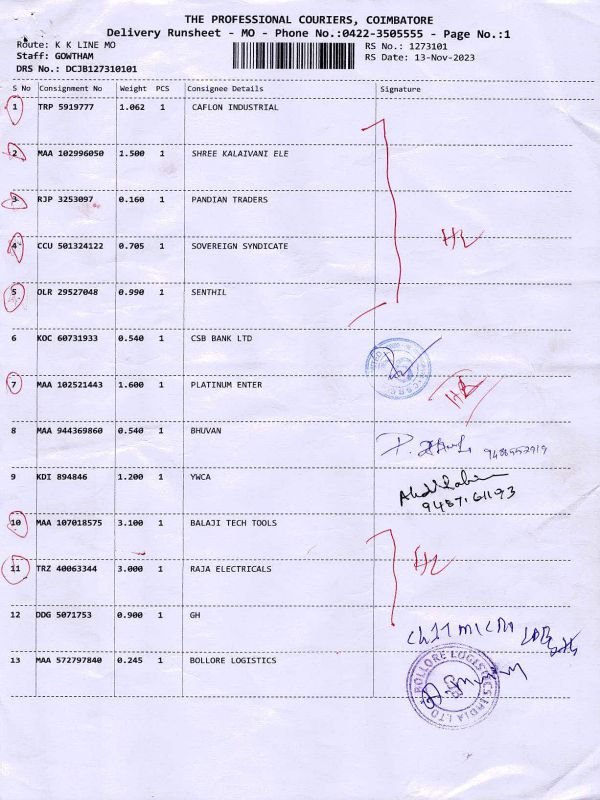 THE PROFESSIONAL COURIERS, COIMBATORE
Delivery Runsheet - MO - Phone No.:0422-3505555 - Page No.:1
Route: K K LINE MO
RS No.: 1273101
Staff: GOWTHAM
RS Date: 13-Nov-2023
DRS No.: DCJB127310101
S No Consignment No Weight PCS Consignee Details Signature
1 TRP 5919777 1.062 1 CAFLON INDUSTRIAL
2 MAA 102996050 1.500 1 SHREE KALAIVANI ELE
3 RJP 3253097 0.160 1 PANDIAN TRADERS
4 CCU 501324122 0.705 1 SOVEREIGN SYNDICATE
5 OLR 29527048 0.990 1 SENTHIL
6 KOC 60731933 0.540 1 CSB BANK LTD
7 MAA 102521443 1.600 1 PLATINUM ENTER
8 MAA 944369860 0.540 1 BHUVAN
9 KDI 894846 1.200 1 YWCA
10 MAA 107018575 3.100 1 BALAJI TECH TOOLS
11 TRZ 40063344 3.000 1 RAJA ELECTRICALS
12 DDG 5071753 0.900 1 GH
13 MAA 572797840 0.245 1 BOLLORE LOGISTICS
BOLLORE LOGISTICS INDIA LTD